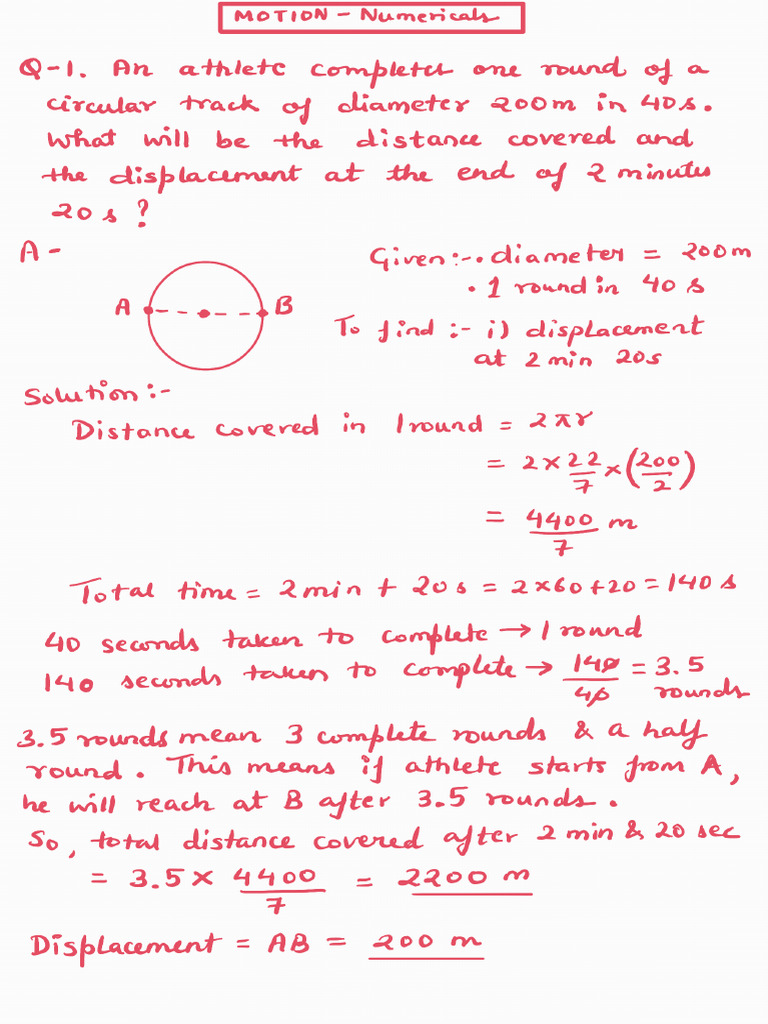 MOTION - Numericals
Q-1. An athlete completes one round of a
circular track of diameter 200m in 40s.
What will be the distance covered and
the displacement at the end of 2 minutes
20 s ?
A -
Given:-. diameter = 200m
. 1 round in 40 s
A B
To find :- i) displacement
at 2 min 20s
Solution :-
Distance covered in 1 round = 2πr
= 2 × 22/7 × (200/2)
= 4400/7 m
Total time = 2 min + 20 s = 2×60+20 = 140 s
40 seconds taken to complete → 1 round
140 seconds taken to complete → 140/40 = 3.5
rounds
3.5 rounds mean 3 complete rounds & a half
round. This means if athlete starts from A,
he will reach at B after 3.5 rounds.
So, total distance covered after 2 min & 20 sec
= 3.5 × 4400/7 = 2200 m
Displacement = AB = 200 m